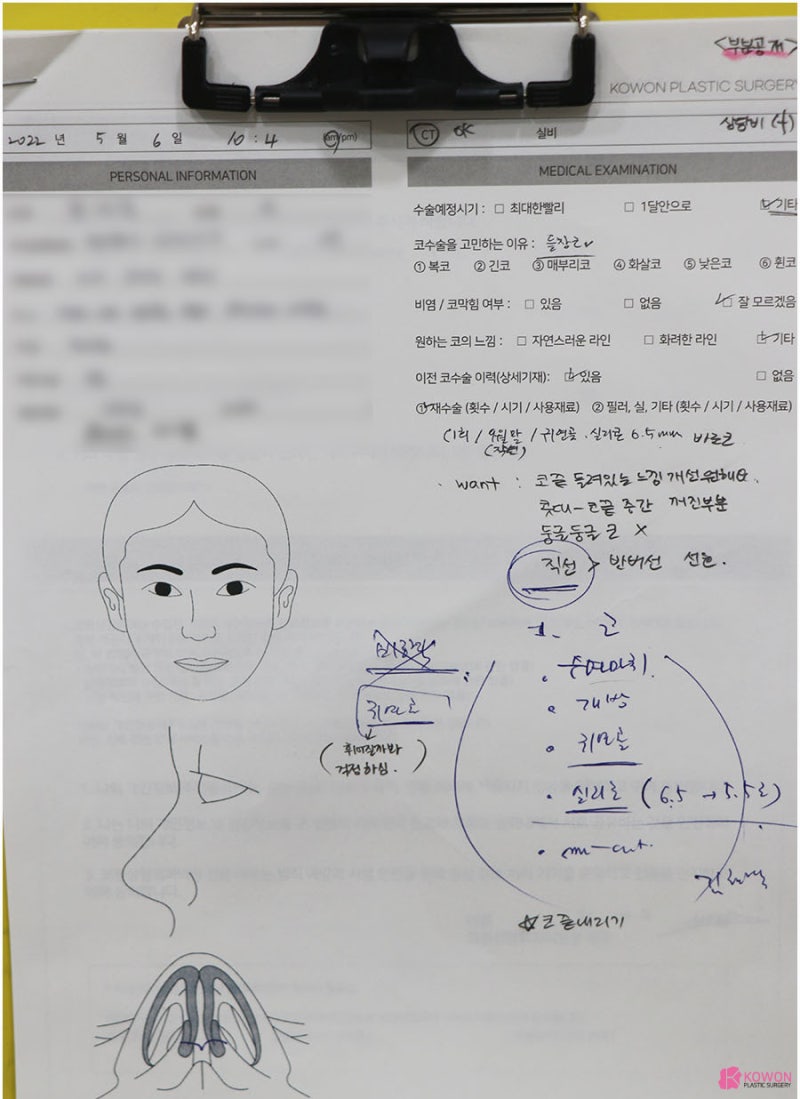 <부분공개>
KOWON PLASTIC SURGERY
2022 년 5 월 6 일 10 : 4 (am/pm)
CT OK 실비 상담비 (+)
PERSONAL INFORMATION
MEDICAL EXAMINATION
수술예정시기 : □ 최대한빨리 □ 1달안으로 ☑ 기타
코수술을 고민하는 이유 : 들창코
① 복코 ② 긴코 ③ 매부리코 ④ 화살코 ⑤ 낮은코 ⑥ 휜코
비염 / 코막힘 여부 : □ 있음 □ 없음 ☑ 잘 모르겠음
원하는 코의 느낌 : □ 자연스러운 라인 □ 화려한 라인 ☑ 기타
이전 코수술 이력(상세기재): ☑ 있음 □ 없음
① 재수술 (횟수 / 시기 / 사용재료) ② 필러, 실, 기타 (횟수 / 시기 / 사용재료)
(1회 / 9월말 / 귀연골, 실리콘 6.5mm 바르코
(작년)
· want : 코끝 들려있는 느낌 개선원해요.
콧대-코끝 중간 꺼진부분
둥글둥글 코 X
직선 > 반버선 선호.
코
· 개방
귀연골
· 귀연골
(휘어질까봐
걱정하심.)
· 실리콘 (6.5 → 5.5로)
☆코끝내리기
KOWON
PLASTIC SURGERY